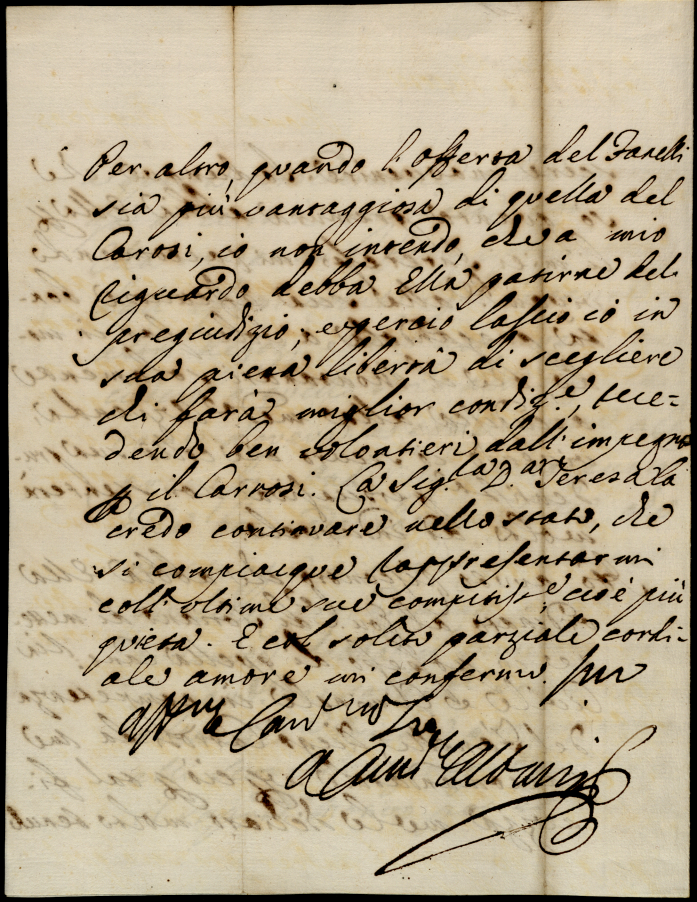 Per altro, quando l'offerta del Fanelli
sia più vantaggiosa di quella del
Carosi, io non intendo, che a mio
riguardo debba Ella patirne del
pregiudizio; e perciò lascio io in
sua piena libertà di scegliere
chi farà miglior condiz.e, rece-
dendo ben volontieri dall'impegno
p il Carrosi. La Sig.ra D. Teresa la
credo continuare nello stato, che
si compiacque rappresentarmi
coll'ultime sue compitiss.e cioè più
quieta. E col solito parziale cordi-
ale amore mi confermo